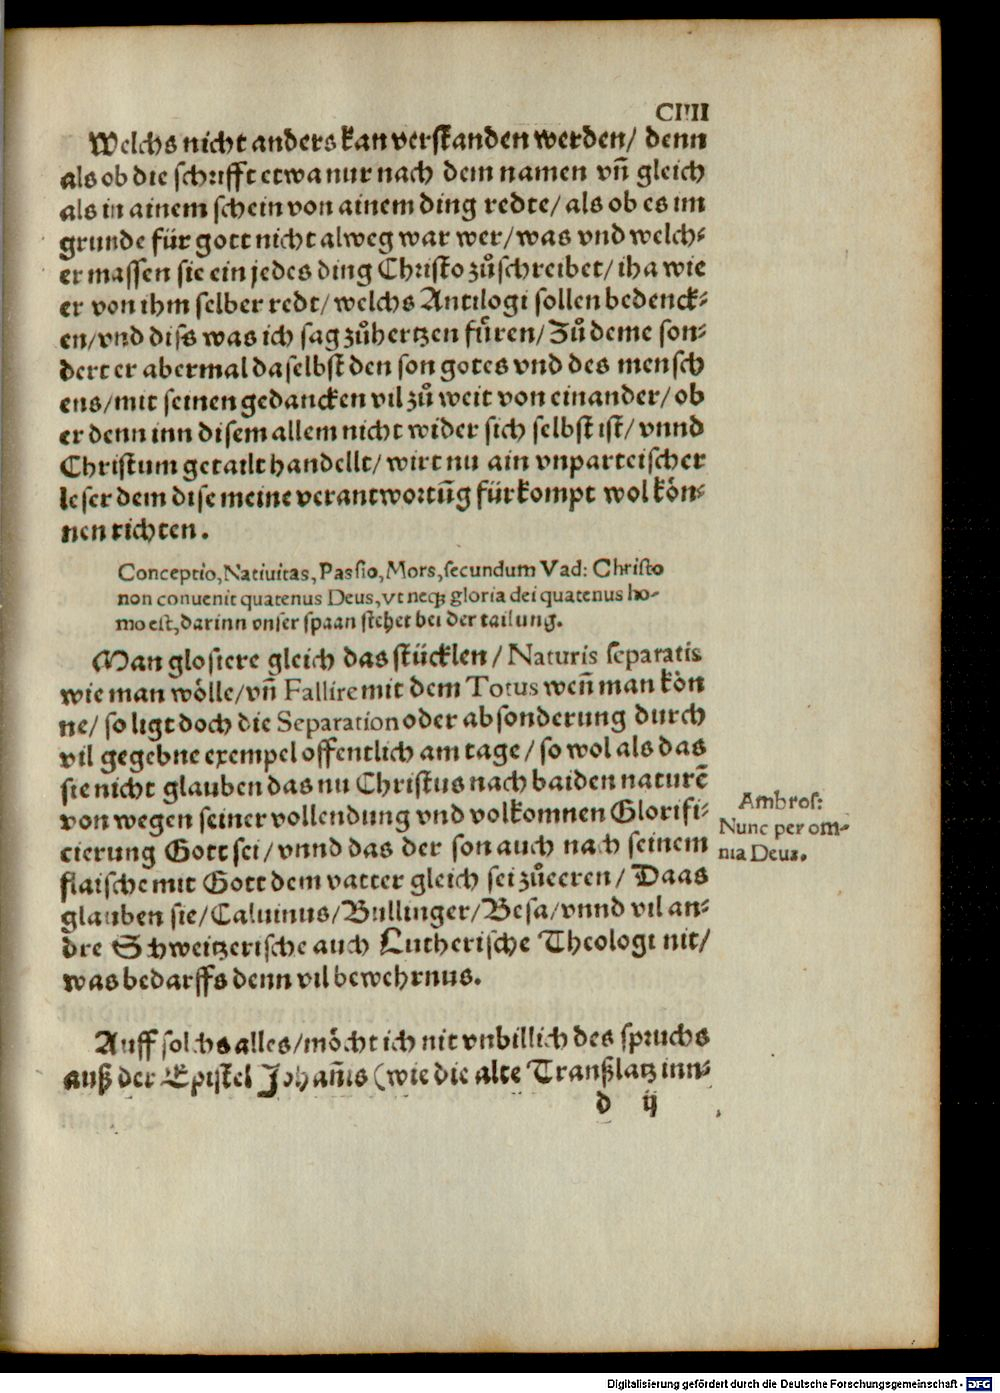 CIIII
Welchs nicht anders kan verstanden werden/ denn
als ob die schrifft etwa nur nach dem namen vñ gleich
als in ainem schein von ainem ding redte/ als ob es im
grunde für gott nicht alweg war wer/ was vnd welch-
er massen sie ein jedes ding Christo zůschreibet/ iha wie
er von ihm selber redt/ welchs Antilogi sollen bedenck-
en/ vnd diss was ich sag zůhertzen fůren/ Zů deme son-
dert er abermal daselbst den son gotes vnd des mensch
ens/ mit seinen gedancken vil zů weit von einander/ ob
er denn inn disem allem nicht wider sich selbst ist/ vnnd
Christum getailt handellt/ wirt nu ain vnparteischer
leser dem dise meine verantwortũg fürkompt wol kön-
nen richten.
Conceptio, Nativitas, Passio, Mors, secundum Vad: Christo
non convenit quatenus Deus, vt neqꝫ gloria dei quatenus ho-
mo est, darinn vnser spaan stehet bei der tailung.
Man glosiere gleich das stücklen/ Naturis separatis
wie man wölle/ vñ Fallire mit dem Totus weñ man kön
ne/ so ligt doch die Separation oder absonderung durch
vil gegebne exempel offentlich am tage/ so wol als das
sie nicht glauben das nu Christus nach baiden naturẽ
von wegen seiner vollendung vnd volkomnen Glorifi-
cierung Gott sei/ vnnd das der son auch nach seinem
flaische mit Gott dem vatter gleich sei zůeeren/ Daas
glauben sie/ Caluinus/ Bullinger/ Besa/ vnnd vil an-
dre Schweitzerische auch Lutherische Theologi nit/
was bedarffs denn vil bewehrnus.
Ambros:
Nunc per om-
nia Deus.
Auff solchs alles/ möcht ich nit vnbillich des spruchs
auß der Epistel Johañis (wie die alte Tranßlatz inn-
d ij
Digitalisierung gefördert durch die Deutsche Forschungsgemeinschaft - DFG